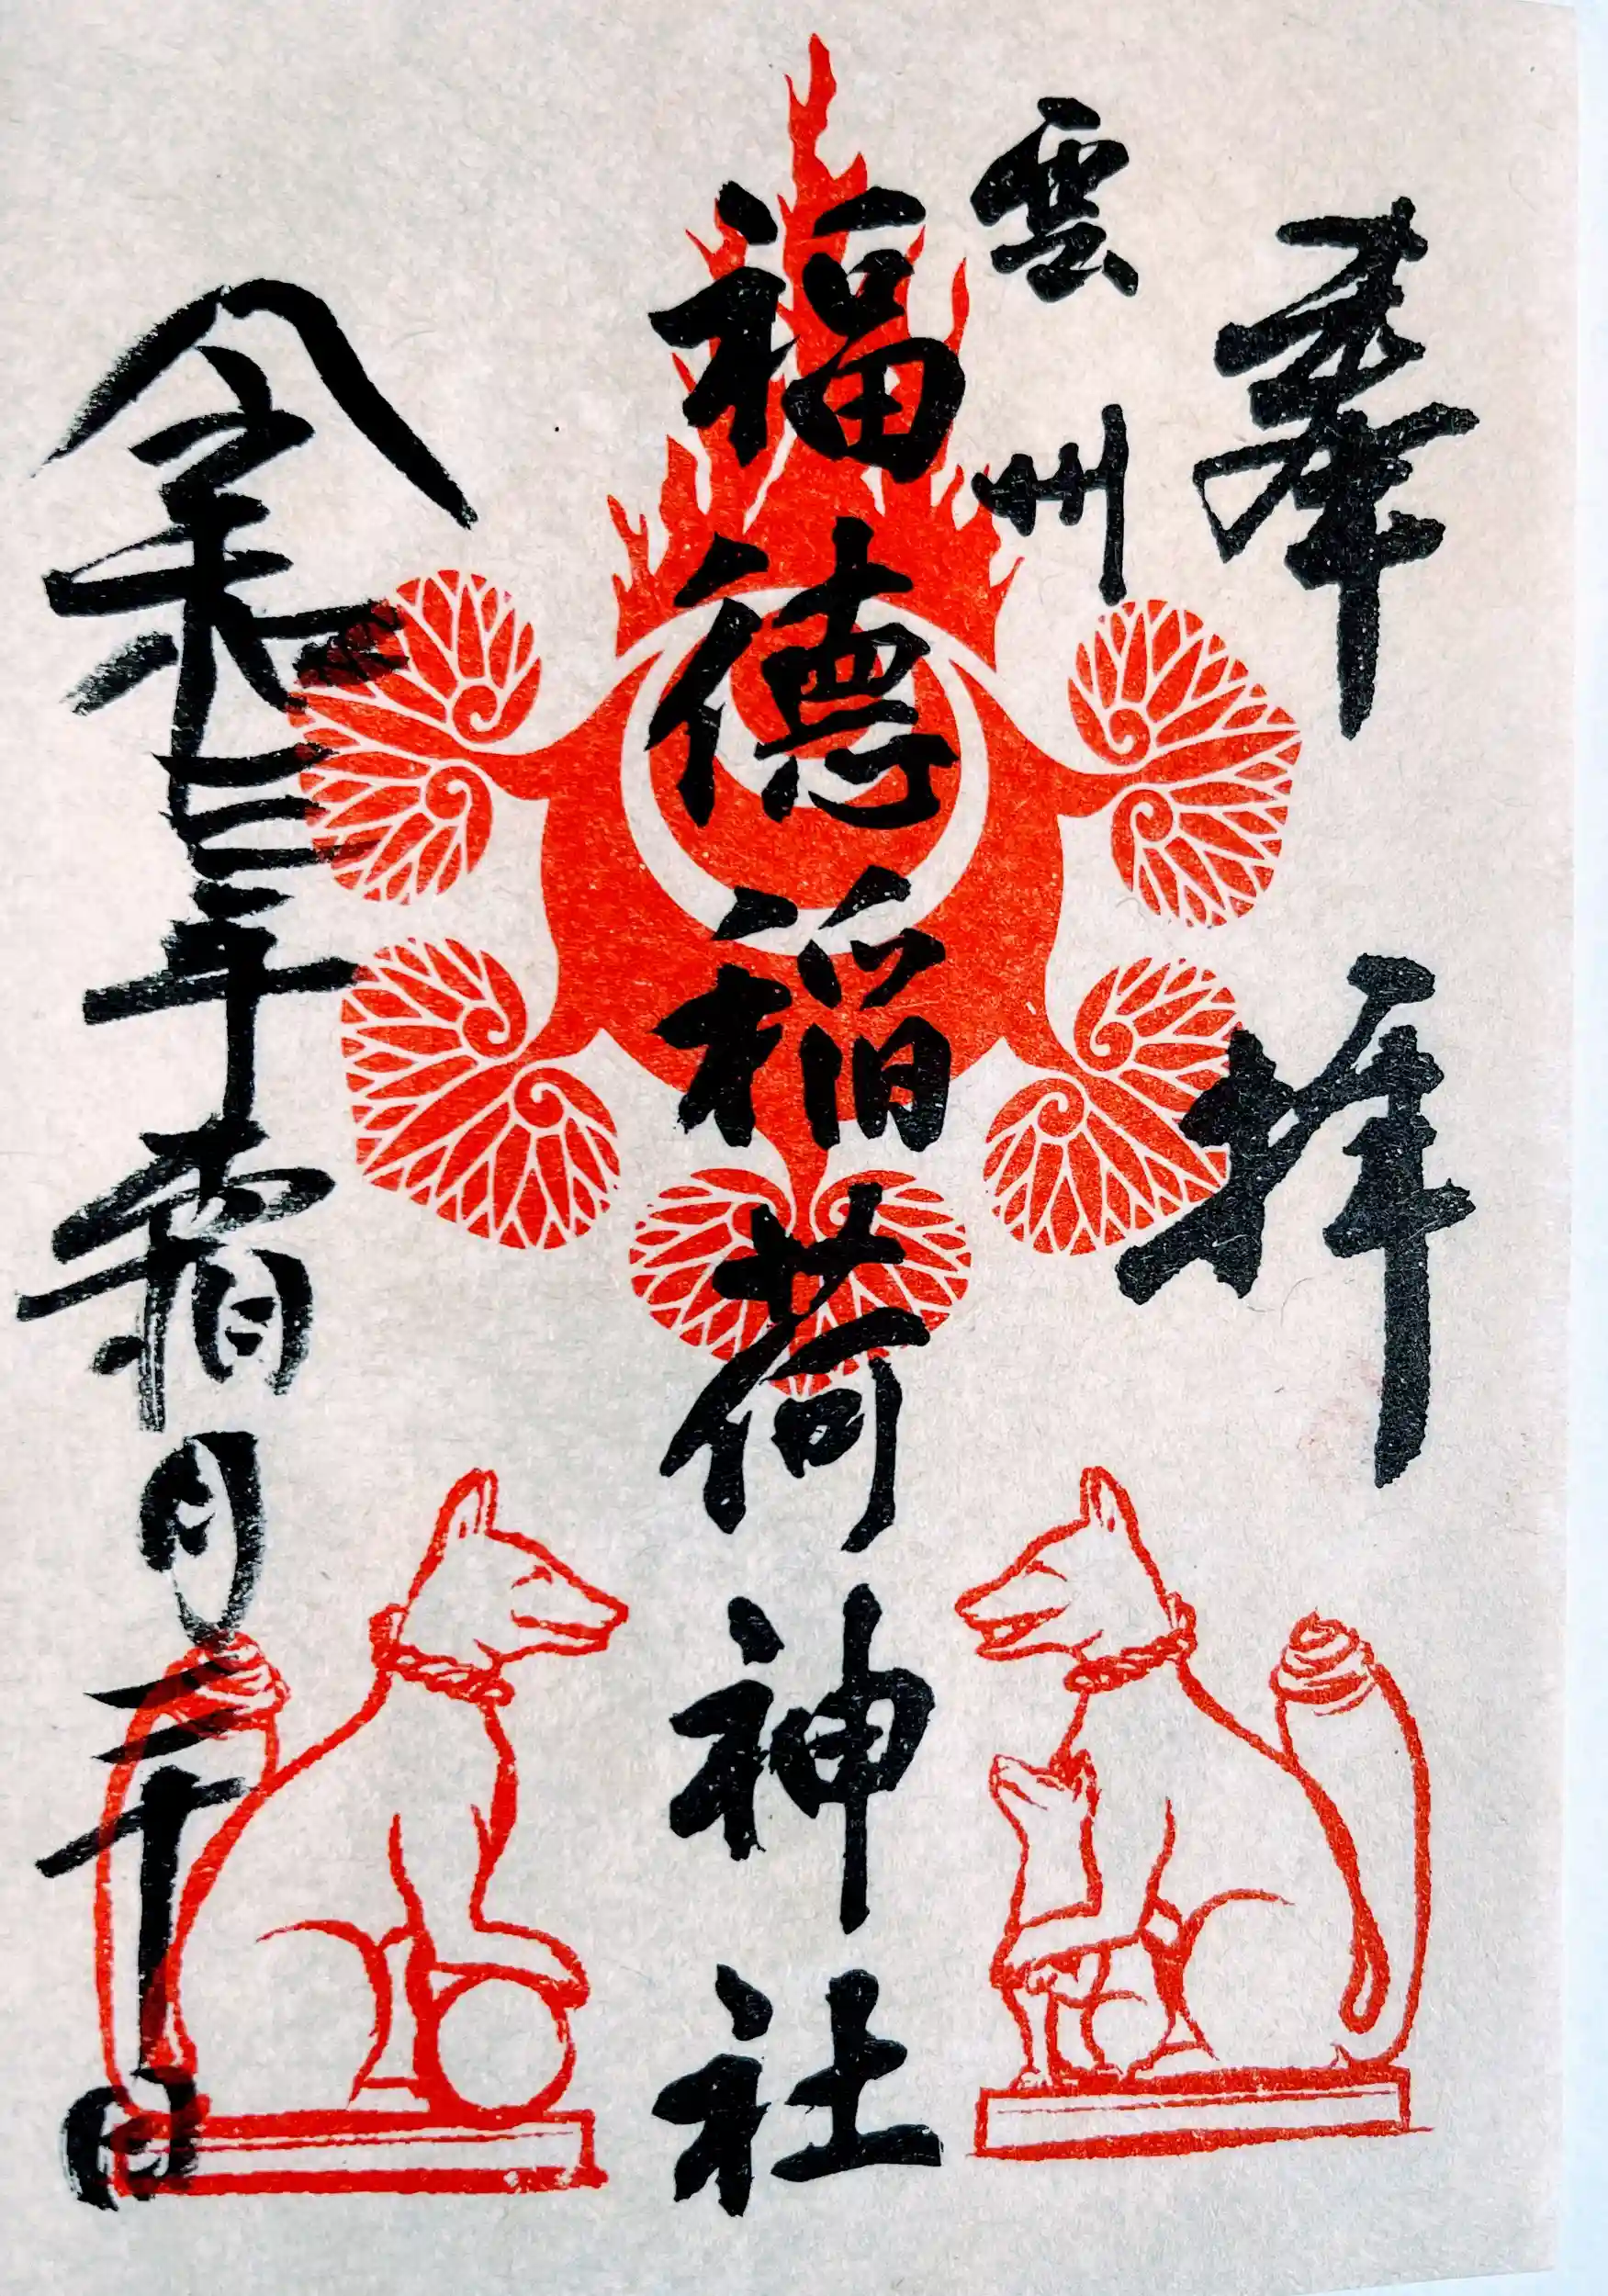 奉拝
雲州
福徳稲荷神社
令和三年霜月二十日